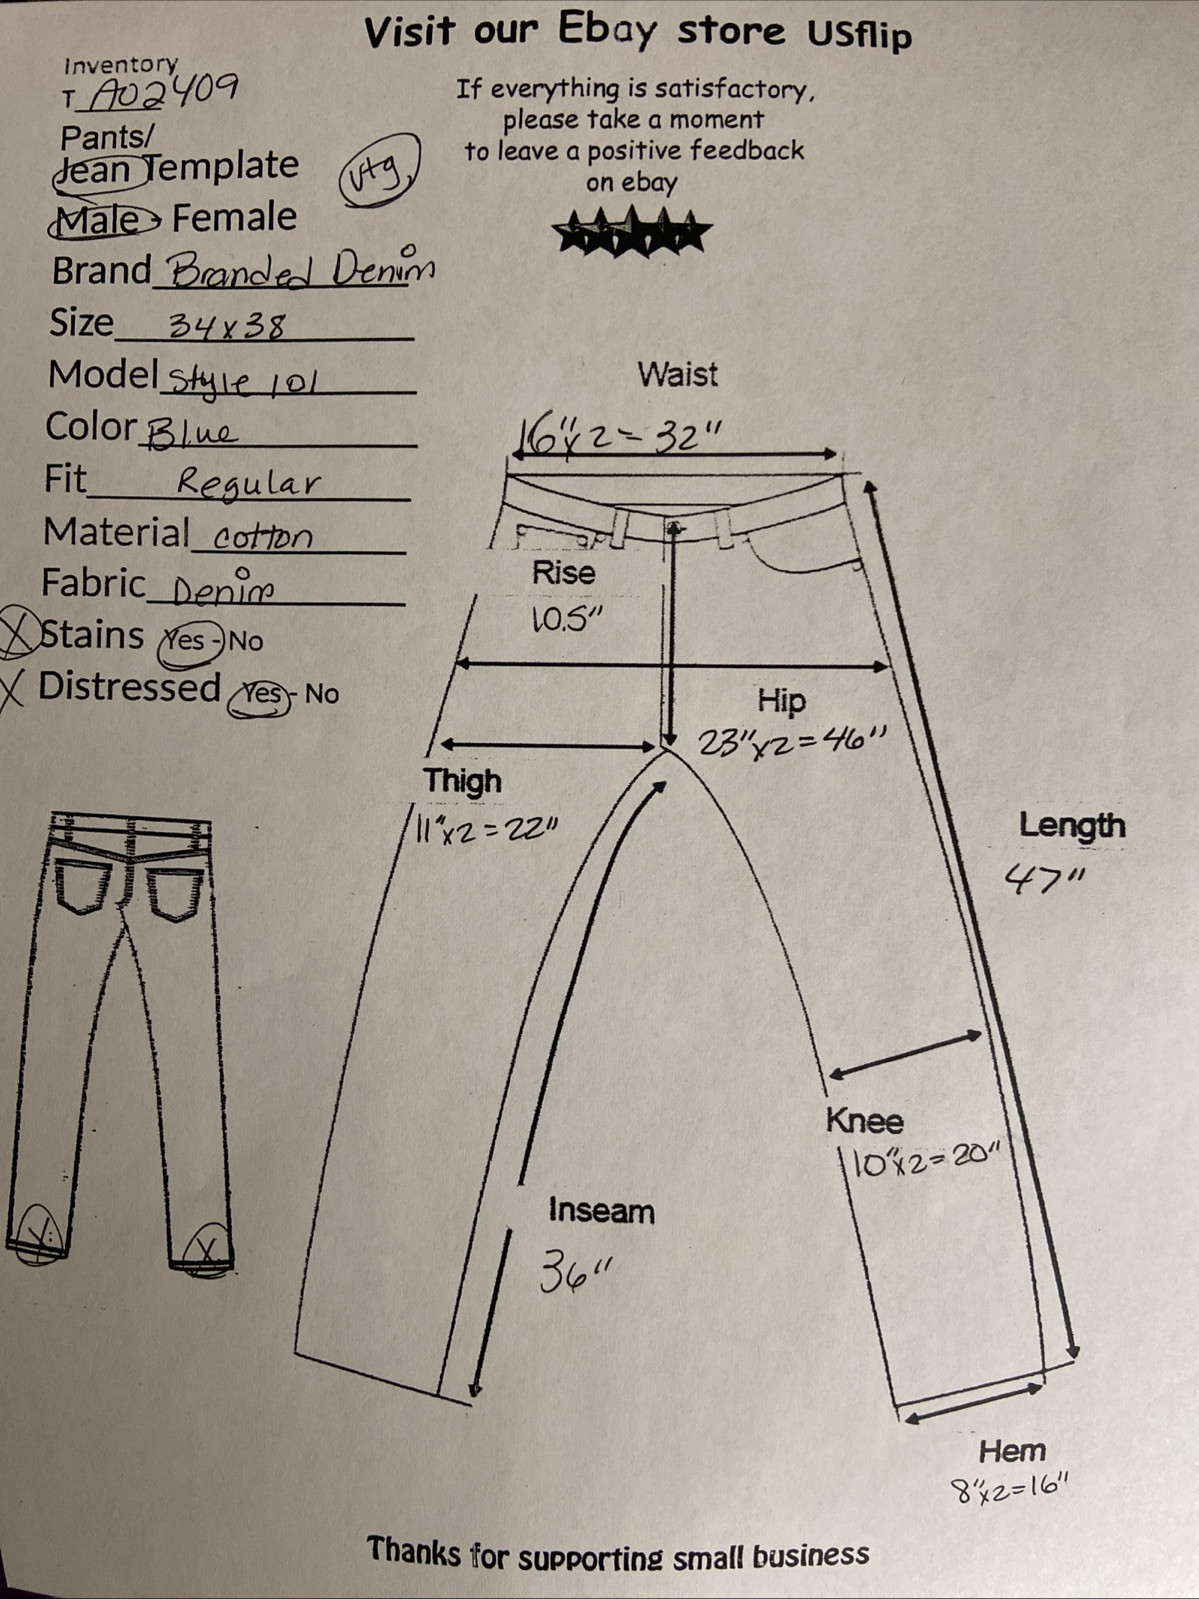 Visit our Ebay store USflip
Inventory
T A02409
If everything is satisfactory,
please take a moment
to leave a positive feedback
on ebay
Pants/
Jean Template
vtg.
Male - Female
Brand Branded Denim
Size 34x38
Model Style 101
Color Blue
Fit Regular
Material cotton
Fabric Denim
X Stains Yes - No
X Distressed Yes - No
Waist
16"x2 = 32"
Rise
10.5"
Hip
23"x2=46"
Thigh
11"x2=22"
Length
47"
Knee
10"x2=20"
Inseam
36"
X X
Hem
8"x2=16"
Thanks for supporting small business